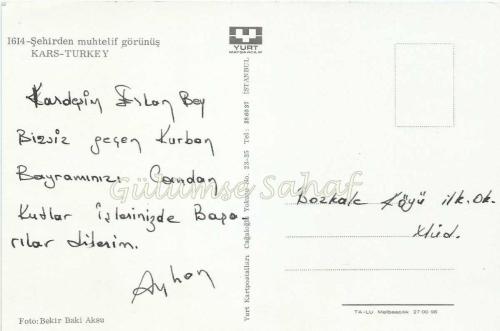 1614-Şehirden muhtelif görünüş
KARS-TURKEY
YURT
MATBAACILIK
Kardeşim Arslan Bey
Bizsiz geçen Kurban
Bayramınızı Candan
Kutlar İşlerinizde Başa
rılar dilerim.
Ayhan
Gülümse Sahaf
Bozkale Köyü ilk. Ok.
Foto: Bekir Baki Aksu
Yurt Kartpostalları Cağaloğlu No. 23-25 Tel: 266037 İSTANBUL
TA-LU. Matbaacılık 27 00 96